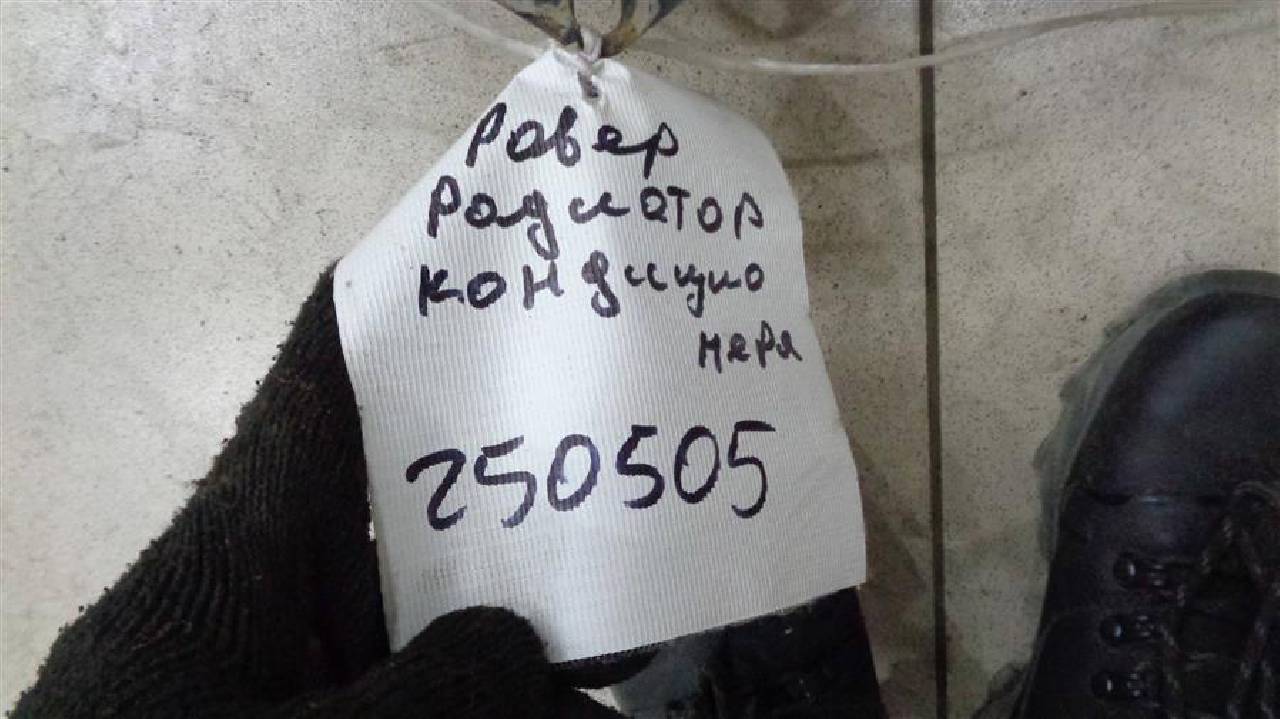 Ровер
Радиатор
кондицио
нера
250505